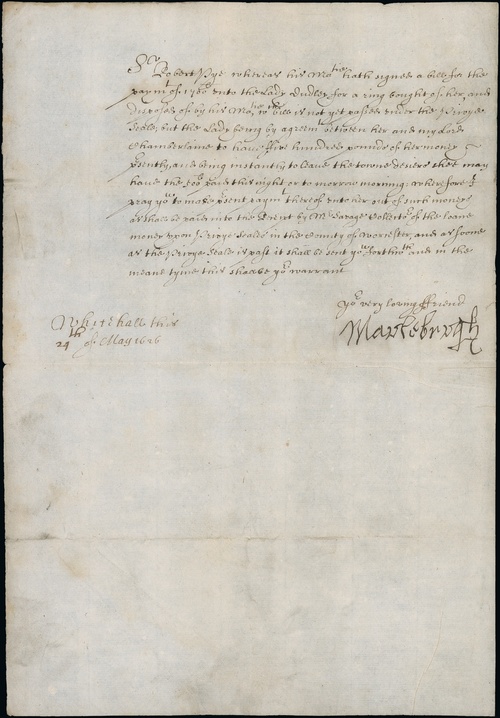 Sr Robert Pye whereas his Matie hath signed a bill for the
paymt of 1780li unto the Lady Dudley for a ring bought of her and
disposed of by his Matie, wch bill is not yet passed under the privye
Seale, but the Lady being by agreemt betweene her and my Lord
Chamberlaine to have ffive hundred pounds of her money
presently, and being instantly to leave the towne desiers shee may
have the 500li paid this night or to morrow morning: Wherefore I
pray you to make present paymt thereof unto her out of such moneys
as shal be paid into the Receit by Mr Savage Collector of the loane
money upon privye Seales in the County of Worcester, and as soone
as the privye Seale is past it shall be sent you forthwth and in the
meane tyme this shal be yor warrant
Yor very loving ffriend
Marlebrough
Whitehall this
24th of May 1626